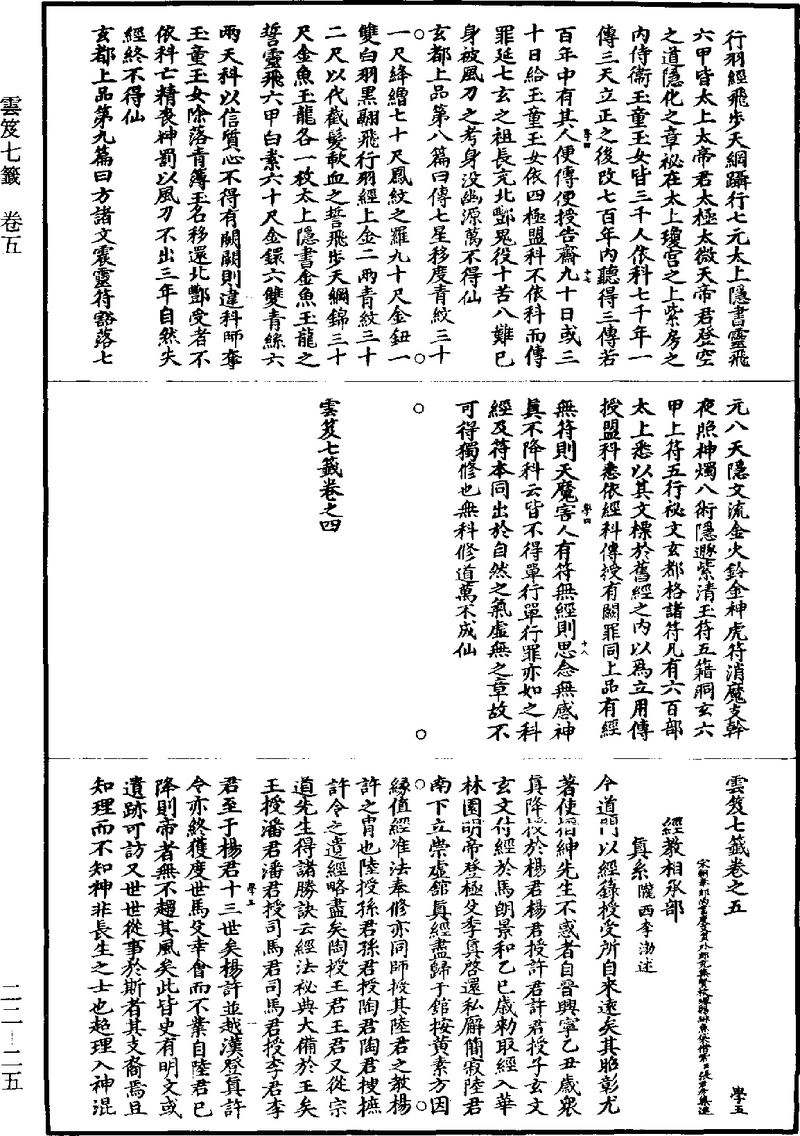 雲笈七籤　卷五
二二—二五
行羽經飛步天綱躡行七元太上隱書靈飛
六甲皆太上太帝君太極太微天帝君登空
之道隱化之章祕在太上瓊宮之上紫房之
內侍衞玉童玉女皆三千人依科七千年一
傳三天立正之後改七百年內聽得三傳若
百年中有其人便傳便授告齋九十日或三
十日給玉童玉女依四極盟科不依科而傳
罪延七玄之祖長充北酆鬼役十苦八難已
身被風刀之考身没幽源萬不得仙
玄都上品第八篇曰傳七星移度青紋三十
一尺絳繒七十尺鳳紋之羅九十尺金鈕一
雙白羽黑翮飛行羽經上金二兩青紋三十
二尺以代截髮歃血之誓飛步天綱錦三十
尺金魚玉龍各一枚太上隱書金魚玉龍之
誓靈飛六甲白素六十尺金鐶六雙青絲六
兩天科以信質心不得有闕闕則違科師奪
玉童玉女除落青簿玉名移還北酆受者不
依科亡精喪神罰以風刀不出三年自然失
經終不得仙
玄都上品第九篇曰方諸文震靈符豁落七
元八天隱文流金火鈴金神虎符消魔支幹
夜照神燭八術隱遯紫清玉符五籍洞玄六
甲上符五行祕文玄都格諸符凡有六百部
太上悉以其文標於舊經之內以爲立用傳
授盟科悉依經科傳授有闕罪同上品有經
無符則天魔害人有符無經則思念無感神
眞不降科云皆不得單行單行罪亦如之科
經及符本同出於自然之氣虛無之章故不
可得獨修也無科修道萬不成仙
雲笈七籤卷之四
學四
十七
學四
十八
雲笈七籤卷之五
學五
經教相承部
眞系隴西李渤述
今道門以經籙授受所自來遠矣其昭彰尤
著使搢紳先生不惑者自晉興寧乙丑歲衆
眞降授於楊君楊君授許君許君授子玄文
玄文付經於馬朗景和乙巳歲勑取經入華
林園明帝登極殳季眞啓還私廨簡寂陸君
南下立崇虛舘眞經盡歸于舘按黃素方因
緣值經准法奉修亦同師授其陸君之教楊
許之胄也陸授孫君孫君授陶君陶君搜摭
許令之遺經略盡矣陶授王君王君又從宗
道先生得諸勝訣云經法祕典大備於王矣
王授潘君潘君授司馬君司馬君授李君李
君至于楊君十三世矣楊許並越漢登眞許
令亦終獲度世馬殳幸會而不業自陸君已
降則帝者無不趨其風矣此皆史有明文或
遺跡可訪又世世從事於斯者其支裔焉且
知理而不知神非長生之士也超理入神混
學五
一